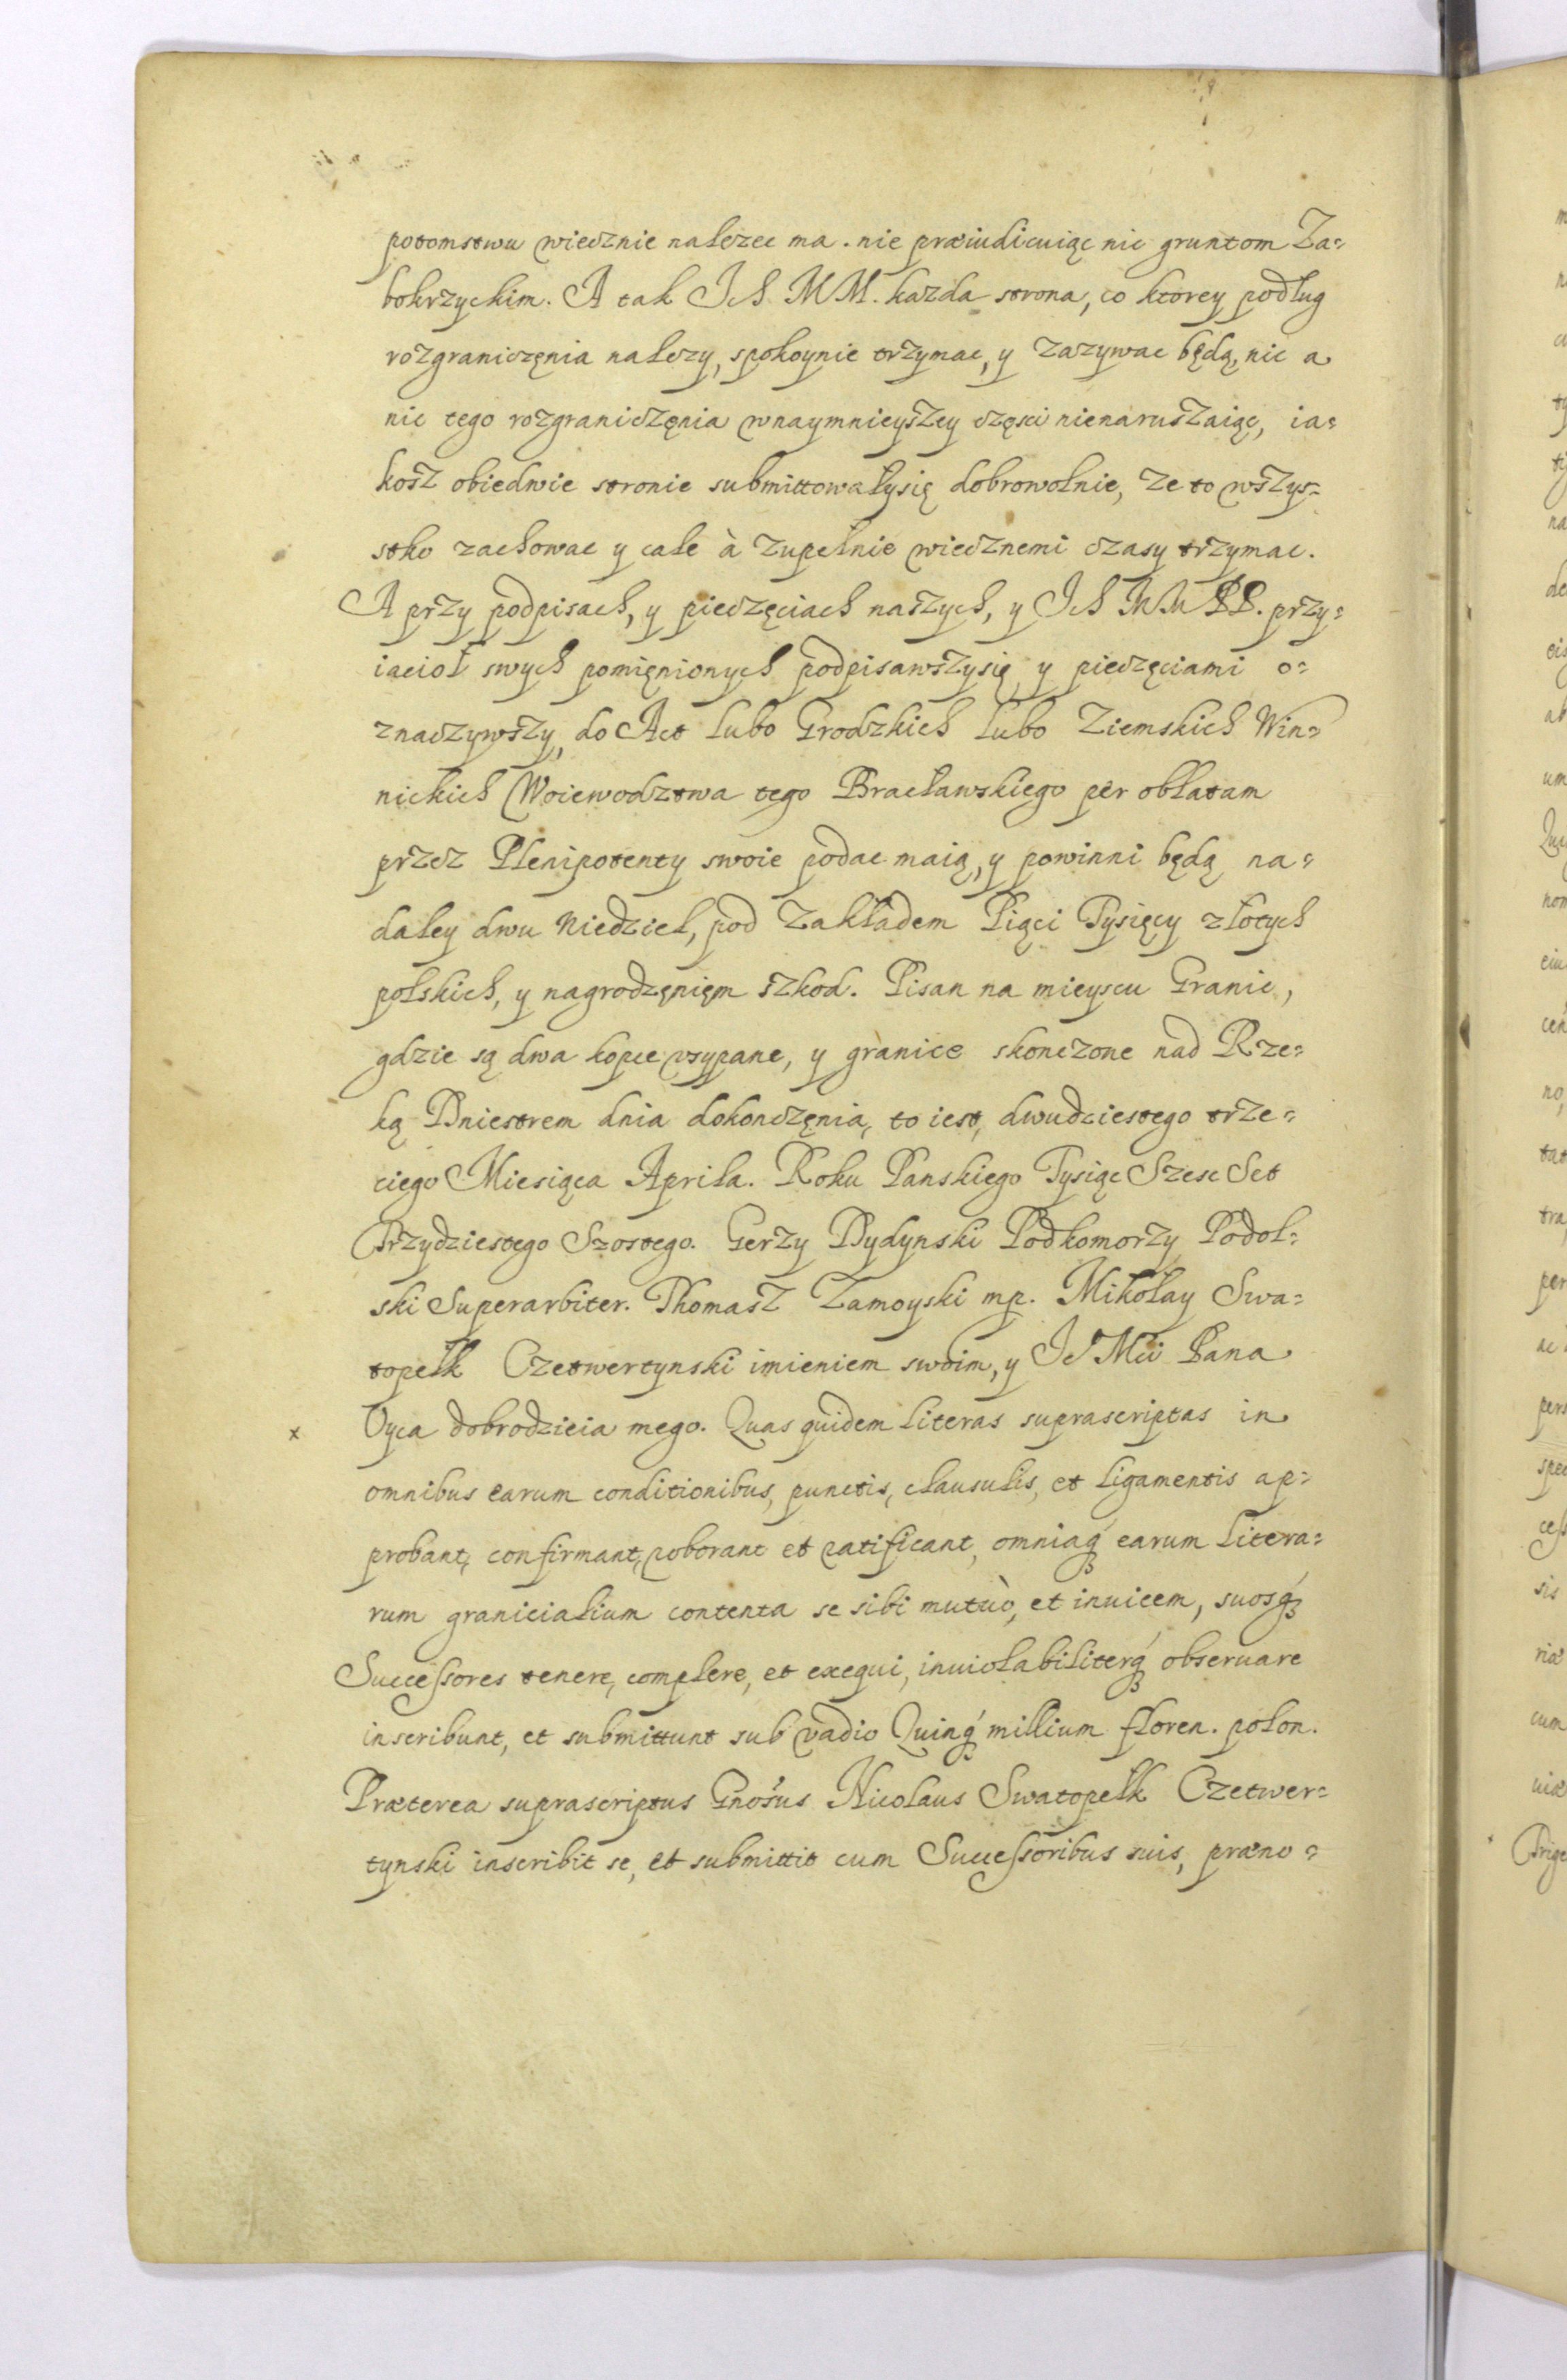 potomstwu wiecznie nalezec ma. nie præiudicuiąc nic gruntom Za=
bokrzyckim. A tak Ich MM. kazda strona, co ktorey podług
rozgraniczęnia nalezy, spokoynie trzymac, y zazywac będą, nic a
nic tego rozgraniczęnia wnaymnieyszey częsci nienaruszaiąc, ia=
kosz obiedwie stronie submittowałysię dobrowolnie, ze to wszys=
stko zachowac y cale à zupełnie wiecznemi czasy trzymac.
A przy podpisach, y pieczęciach naszych, y Ich MM PP. przy=
iacioł swych pomięnionych podpisawszysię y pieczęciami o=
znaczywszy, do Act lubo Grodzkich lubo Ziemskich Win=
nickich Woiewodztwa tego Bracławskiego per oblatam
przez Plenipotenty swoie podac maią, y powinni będą na=
daley dwu Niedziel, pod Zakładem Pięci Tysięcy złotych
polskich, y nagrodzęnięm szkod. Pisan na mieyscu Granic,
gdzie są dwa kopce vsypane, y granice skonczone nad Rze=
ką Dniestrem dnia dokonczęnia, to iest, dwudziestego trze=
ciego Miesiąca Aprila. Roku Panskiego Tysiąc Szesc Set
Trzydziestego Szostego. Gerzy Dydynski Podkomorzy Podol=
ski Superarbiter. Thomasz Zamoyski mp. Mikołay Swa=
topełk Czetwertynski imieniem swoim, y Jᵒ Mći Pana
x Oyca dobrodzieia mego. Quas quidem literas suprascriptas in
omnibus earum conditionibus, punctis, clausulis, et ligamentis ap=
probant, confirmant, roborant et ratificant, omniaq́ earum litera=
rum granicialium contenta se sibi mutuò, et inuicem, suosq́
Successores tenere, complere, et exequi, inuiolabiliterq́ obseruare
inscribunt, et submittunt sub vadio Quinq́ millium floren. polon.
Præterea suprascriptus Gnosus Nicolaus Swatopełk Czetwer=
tynski inscribit se, et submittit cum Successoribus suis, præno=